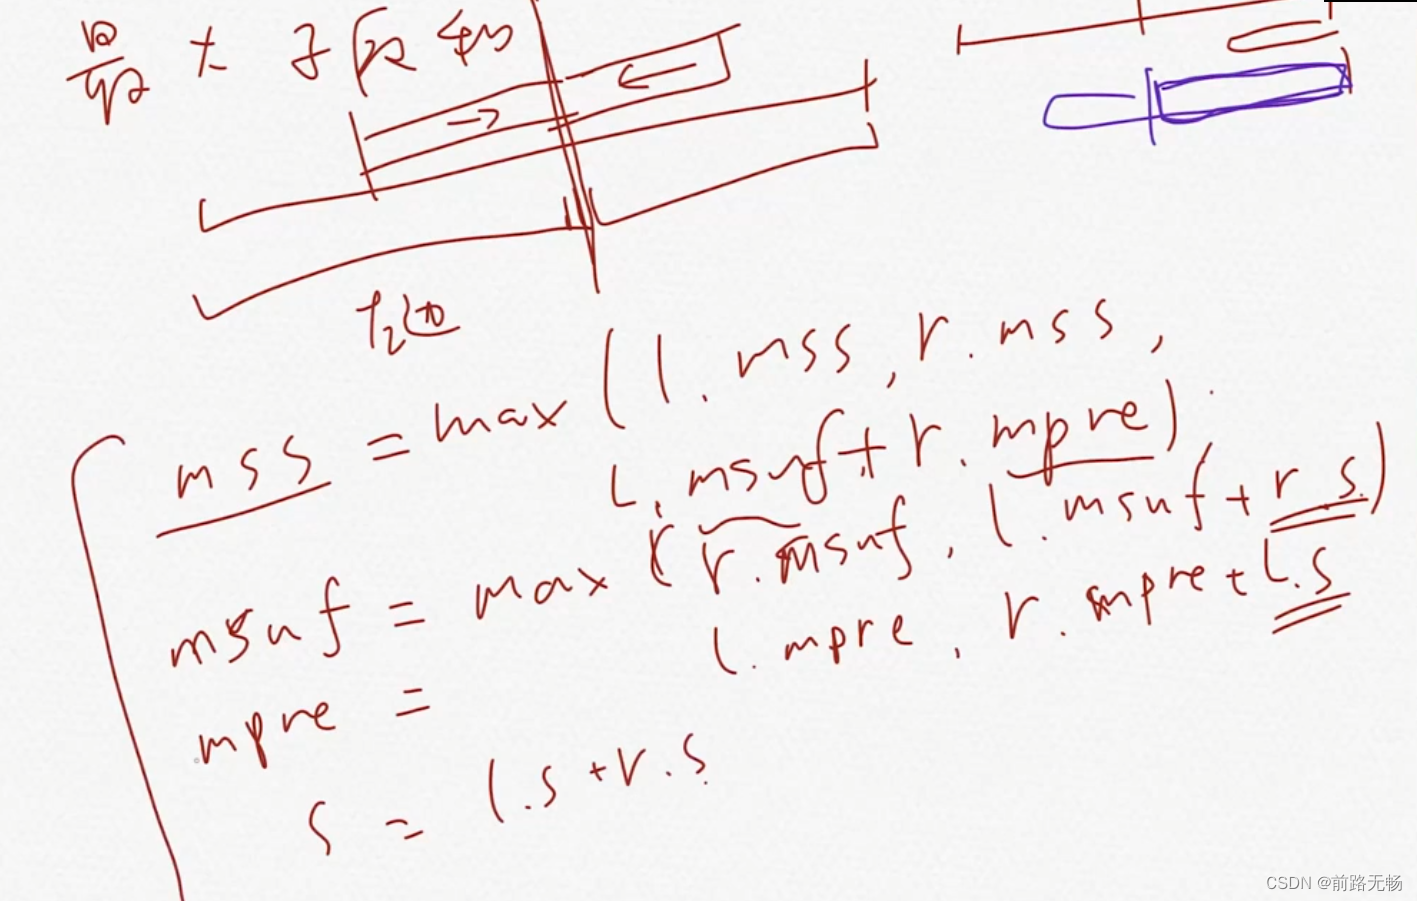 大子段和
左边
mss = max(l.mss, r.mss,
l.msuf + r.mpre)
msuf = max(r.msuf, l.msuf + r.s)
l.mpre, r.mpre + l.s
mpre =
s = l.s + r.s
CSDN @前路无畅